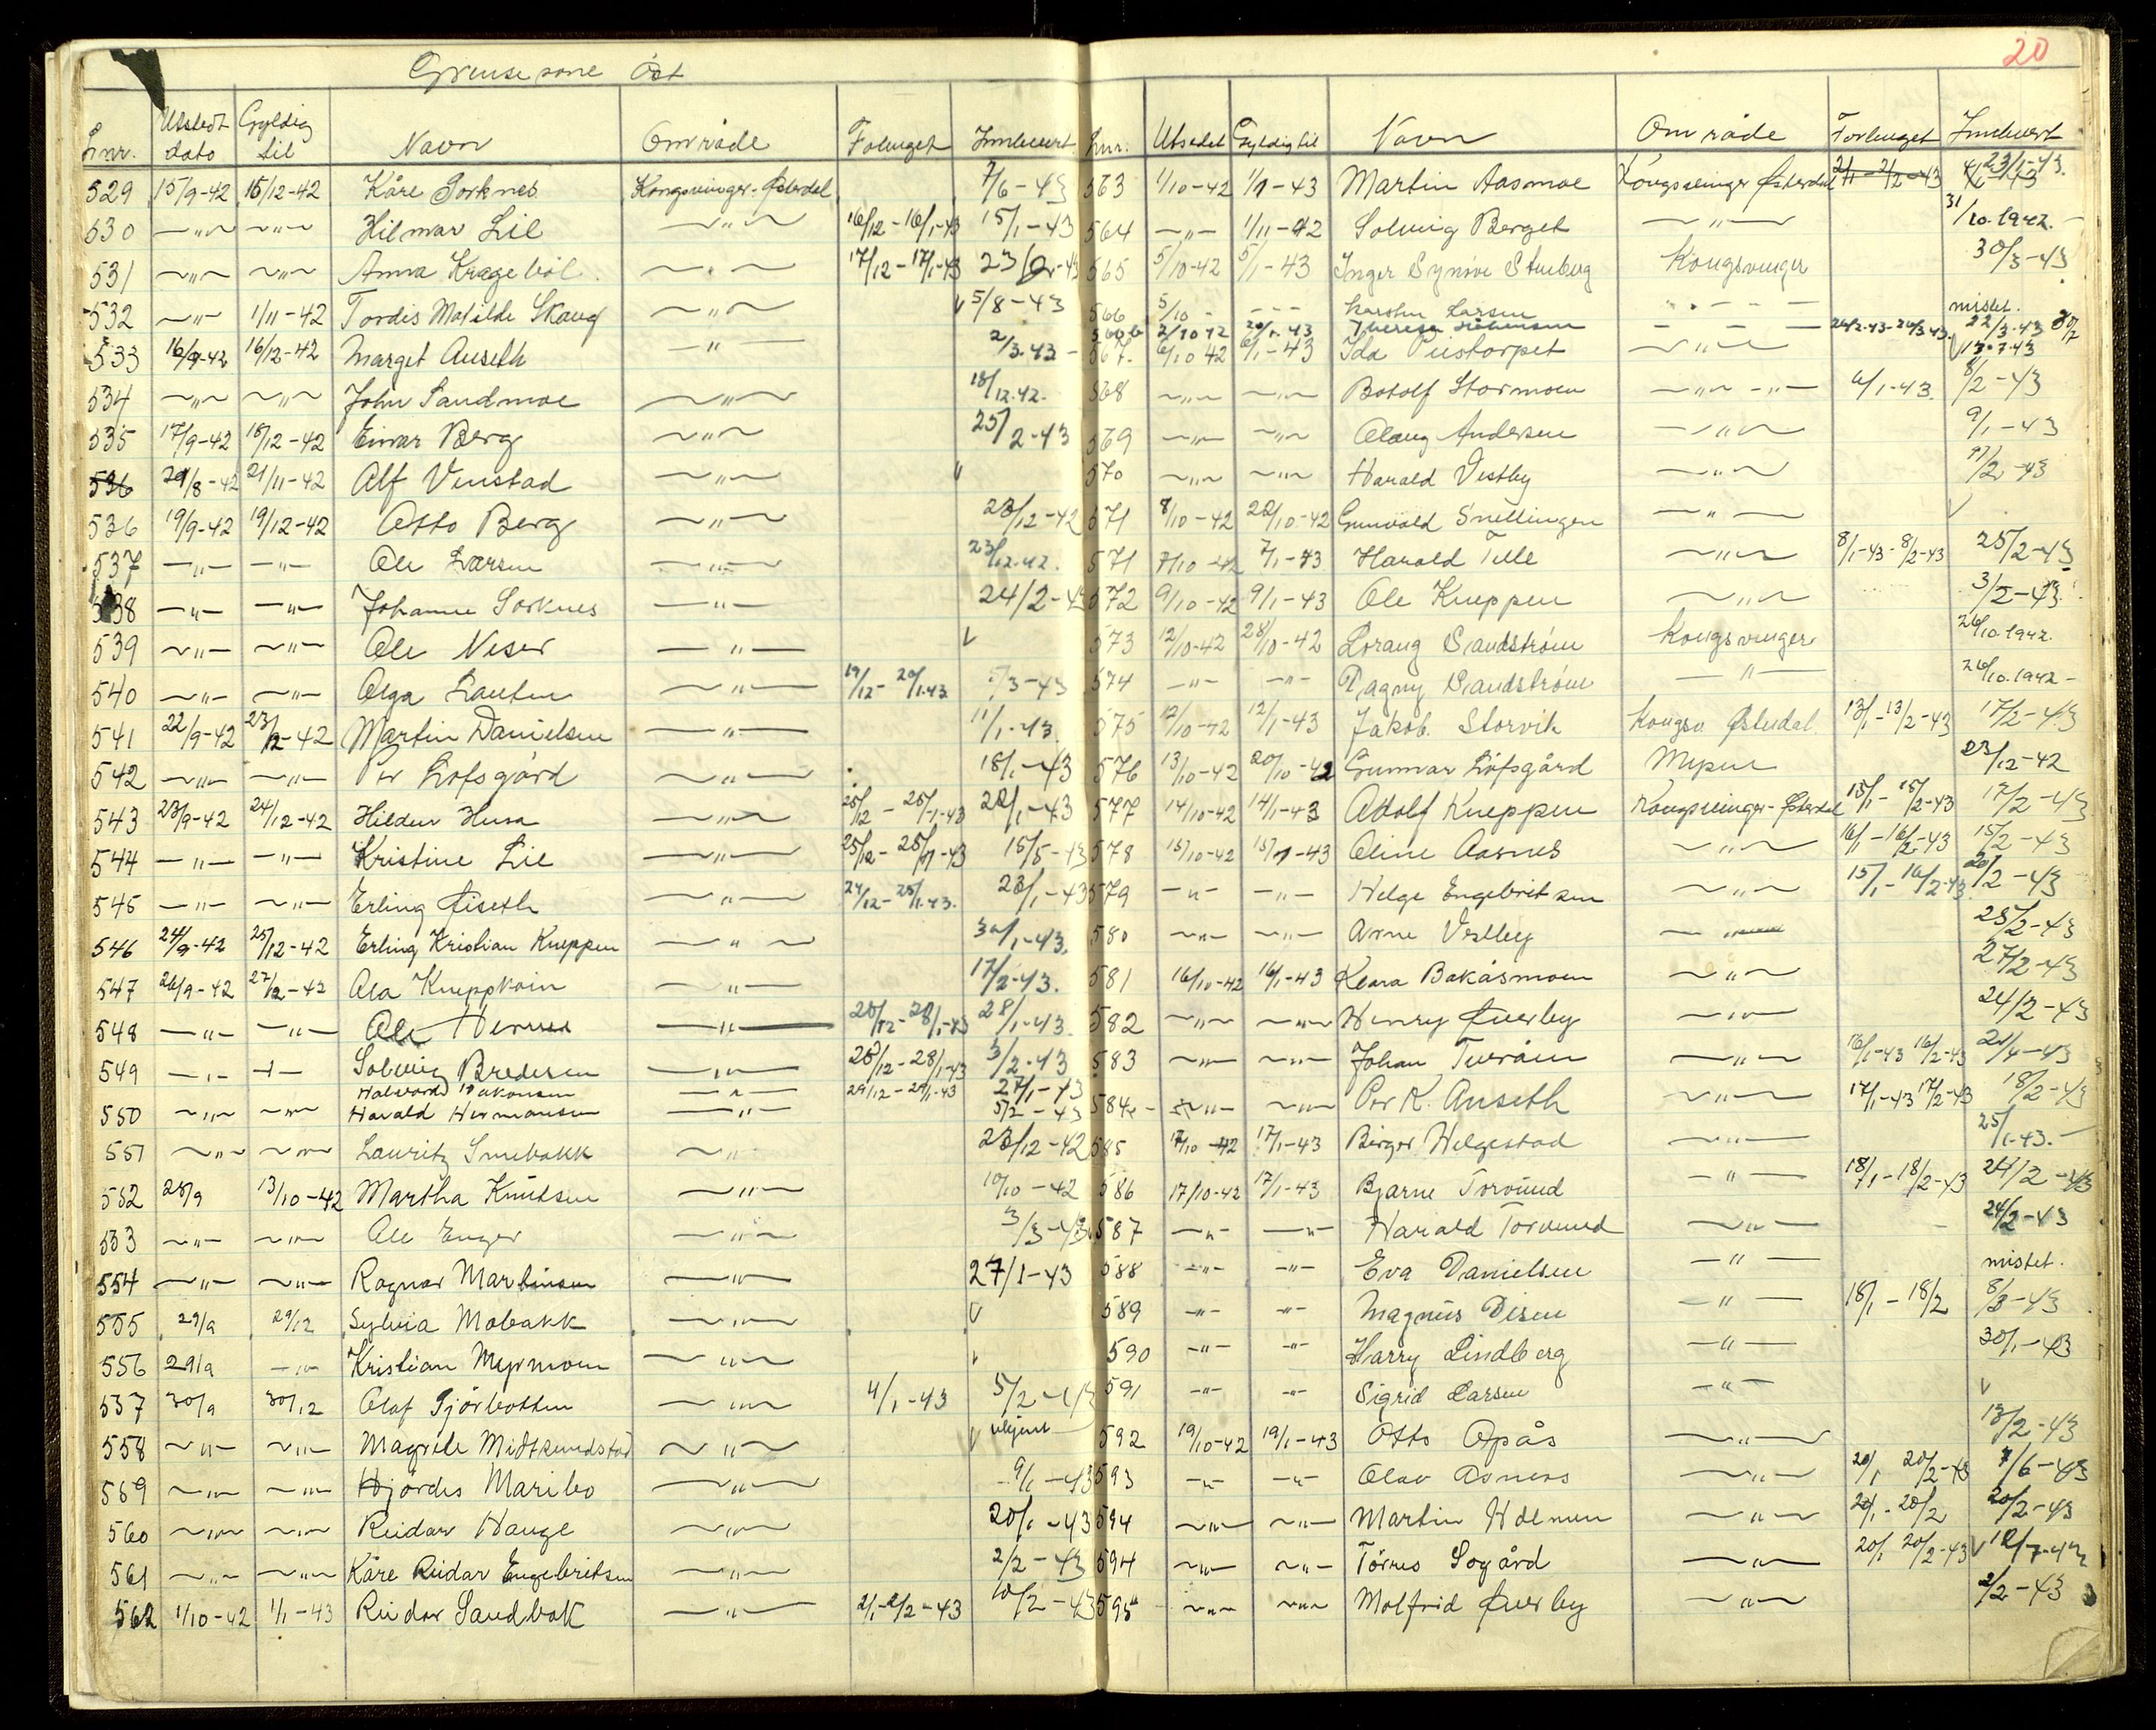 20
Grensesone Öst
Lnr. Utstedt dato Gyldig til Navn Område Folenget Innlevert
529 15/9-42 15/12-42 Kåre Sorknes Kongsvinger-Østerdal 7/6-43
530 —"— —"— Hilmar Lie —"— 16/12-16/1-43 15/1-43
531 —"— —"— Anna Kragebøl —"— 17/12-17/1-43 23/2-43
532 —"— 1/11-42 Tordis Matilde Skaug —"— V 5/8-43
533 16/9-42 16/12-42 Marget Auseth —"— 2/3.43-
534 —"— —"— John Sandmoe —"— 18/12.42.
535 17/9-42 18/12-42 Einar Berg —"— 25/2-43
536 21/8-42 21/11-42 Alf Venstad —"— V
536 19/9-42 19/12-42 Otto Berg —"— 23/12-42
537 —"— —"— Ole Larsen —"— 23/12.42.
538 —"— —"— Johanne Sorknes —"— 24/2-43
539 —"— —"— Ole Neser —"— V
540 —"— —"— Olga Lauten —"— 19/12-20/1.43 /3-43
541 22/9-42 23/12-42 Martin Danielsen —"— 11/1-43.
542 —"— —"— Per Löfsgård —"— 18/1-43
543 23/9-42 24/12-42 Hildur Husa —"— 25/12-25/1-43 28/1-43
544 —"— —"— Kristine Lie —"— 25/12-25/1-43 15/5-43
545 —"— —"— Erling Øiseth —"— 24/12-25/1.43. 23/1-43
546 24/9-42 25/12-42 Erling Kristian Kneppen —"— 30/1-43.
547 26/9-42 27/12-42 Ola Kneppkoin —"— 17/2-43.
548 —"— —"— Ole —"— 28/12-28/1-43 28/1-43.
549 —"— —"— Solveig Bredesen —"— 28/12-28/1-43 3/2-43
Halvard Håkonsen —"— 29/12-29/1-43 27/1-43
550 —"— —"— Harald Hermansen —"— 5/2-43
551 —"— —"— Lauritz Smebakk —"— 23/12-42
552 28/9 13/10-42 Martha Knutsen —"— 10/10-42
553 —"— —"— Ole Enger —"— 3/3-43
554 —"— —"— Ragnar Martinsen —"— 27/1-43
555 29/9 29/12 Sylvia Mobakk —"— V
556 29/9 —"— Kristian Myrmoen —"— V
557 30/9 30/12 Olaf Gjörbotten —"— 4/1-43 5/2-43
558 —"— —"— Magrete Midtskundstad —"— V
559 —"— —"— Hjördis Maribo —"— 9/1-43
560 —"— —"— Reidar Hauge —"— 20/1-43
561 —"— —"— Kåre Reidar Engebritsen —"— 2/2-43
562 1/10-42 1/1-43 Reidar Sandbak —"— 2/1-2/2-43 10/2-43
Lnr. Utstedt Gyldig til Navn Område Forlenget Innlevert
563 1/10-42 1/1-43 Martin Aasmoe Kongsvinger Østerdal 2/1-2/2-43 23/1-43.
564 —"— 1/11-42 Solveig Berget —"— 31/10.1942.-
565 5/10-42 5/1-43 Inger Synöve Stenberg Kongsvinger 30/3-43
566 5/10 - - - - Karsten Larsen - - - - mistet.
566b 2/10 42 20/1.43 Therese Johansen - - - 24/2-43-24/3.43. 22/3-43
567. 6/10 42 6/1-43 Ida Piistorpet —"— V 13.7.43
568 —"— —"— Botolf Stormoen —"— 6/1-43. 8/2-43
569 —"— —"— Olaug Andersen —"— 9/1-43
570 —"— —"— Harald Vestby —"— 17/2-43
571 8/10-42 28/10-42 Gunvald Snellingen —"— V
571 7/10-42 7/1-43 Harald Telle —"— 8/1-43-8/2-43 25/2-43
572 9/10-42 9/1-43 Ole Kneppen —"— 3/2-43.
573 12/10-42 28/10-42 Loraug Sandström Kongsvinger 26/10.1942.
574 —"— —"— Dagny Sandström —"— 26/10.1942-
575 12/10-42 12/1-43 Jakob. Storvik Kongsv Østerdal. 13/1-13/2-43 17/2-43
576 13/10-42 20/10-42 Gunnar Löfsgård Mysen 23/12-42
577 14/10-42 14/1-43 Adolf Kneppen Kongsvinger-Østerdal 15/1-15/2-43 17/2-43
578 15/10-42 15/1-43 Oline Aasnes —"— 16/1-16/2-43 15/2-43
579 —"— —"— Helge Engebritsen —"— 15/1-16/2-43. 20/2-43
580 —"— —"— Arne Vestby —"— 25/2-43
581 16/10-42 16/1-43 Klara Bakåsmoen —"— 27/2-43
582 —"— —"— Henry Øverby —"— 24/2-43
583 —"— —"— Johan Tveråen —"— 16/1-43 16/2-43 21/4-43
584 —"— —"— Per K. Auseth —"— 17/1-43 17/2-43 18/2-43
585 17/10-42 17/1-43 Birger Helgestad —"— 25/1-43.-
586 17/10-42 17/1-43 Bjarne Torvund —"— 18/1-18/2-43 24/2-43
587 —"— —"— Harald Torvund —"— 24/2-43
588 —"— —"— Eva Danielsen —"— mistet.
589 —"— —"— Magnus Disen —"— 18/1-18/2 8/3-43
590 —"— —"— Harry Lindberg —"— 30/1-43
591 —"— —"— Sigrid Larsen —"— V
592 19/10-42 19/1-43 Otto Opås —"— 13/2-43
593 —"— —"— Olav Åsnes —"— 20/1 20/2-43 7/6-43
594 —"— —"— Martin Holmen —"— 20/1-20/2 20/2-43
594 —"— —"— Törres Sogård —"— 20/1 20/2-43 V 12/7-43
595 —"— —"— Molfrid Øverby —"— 2/2-43